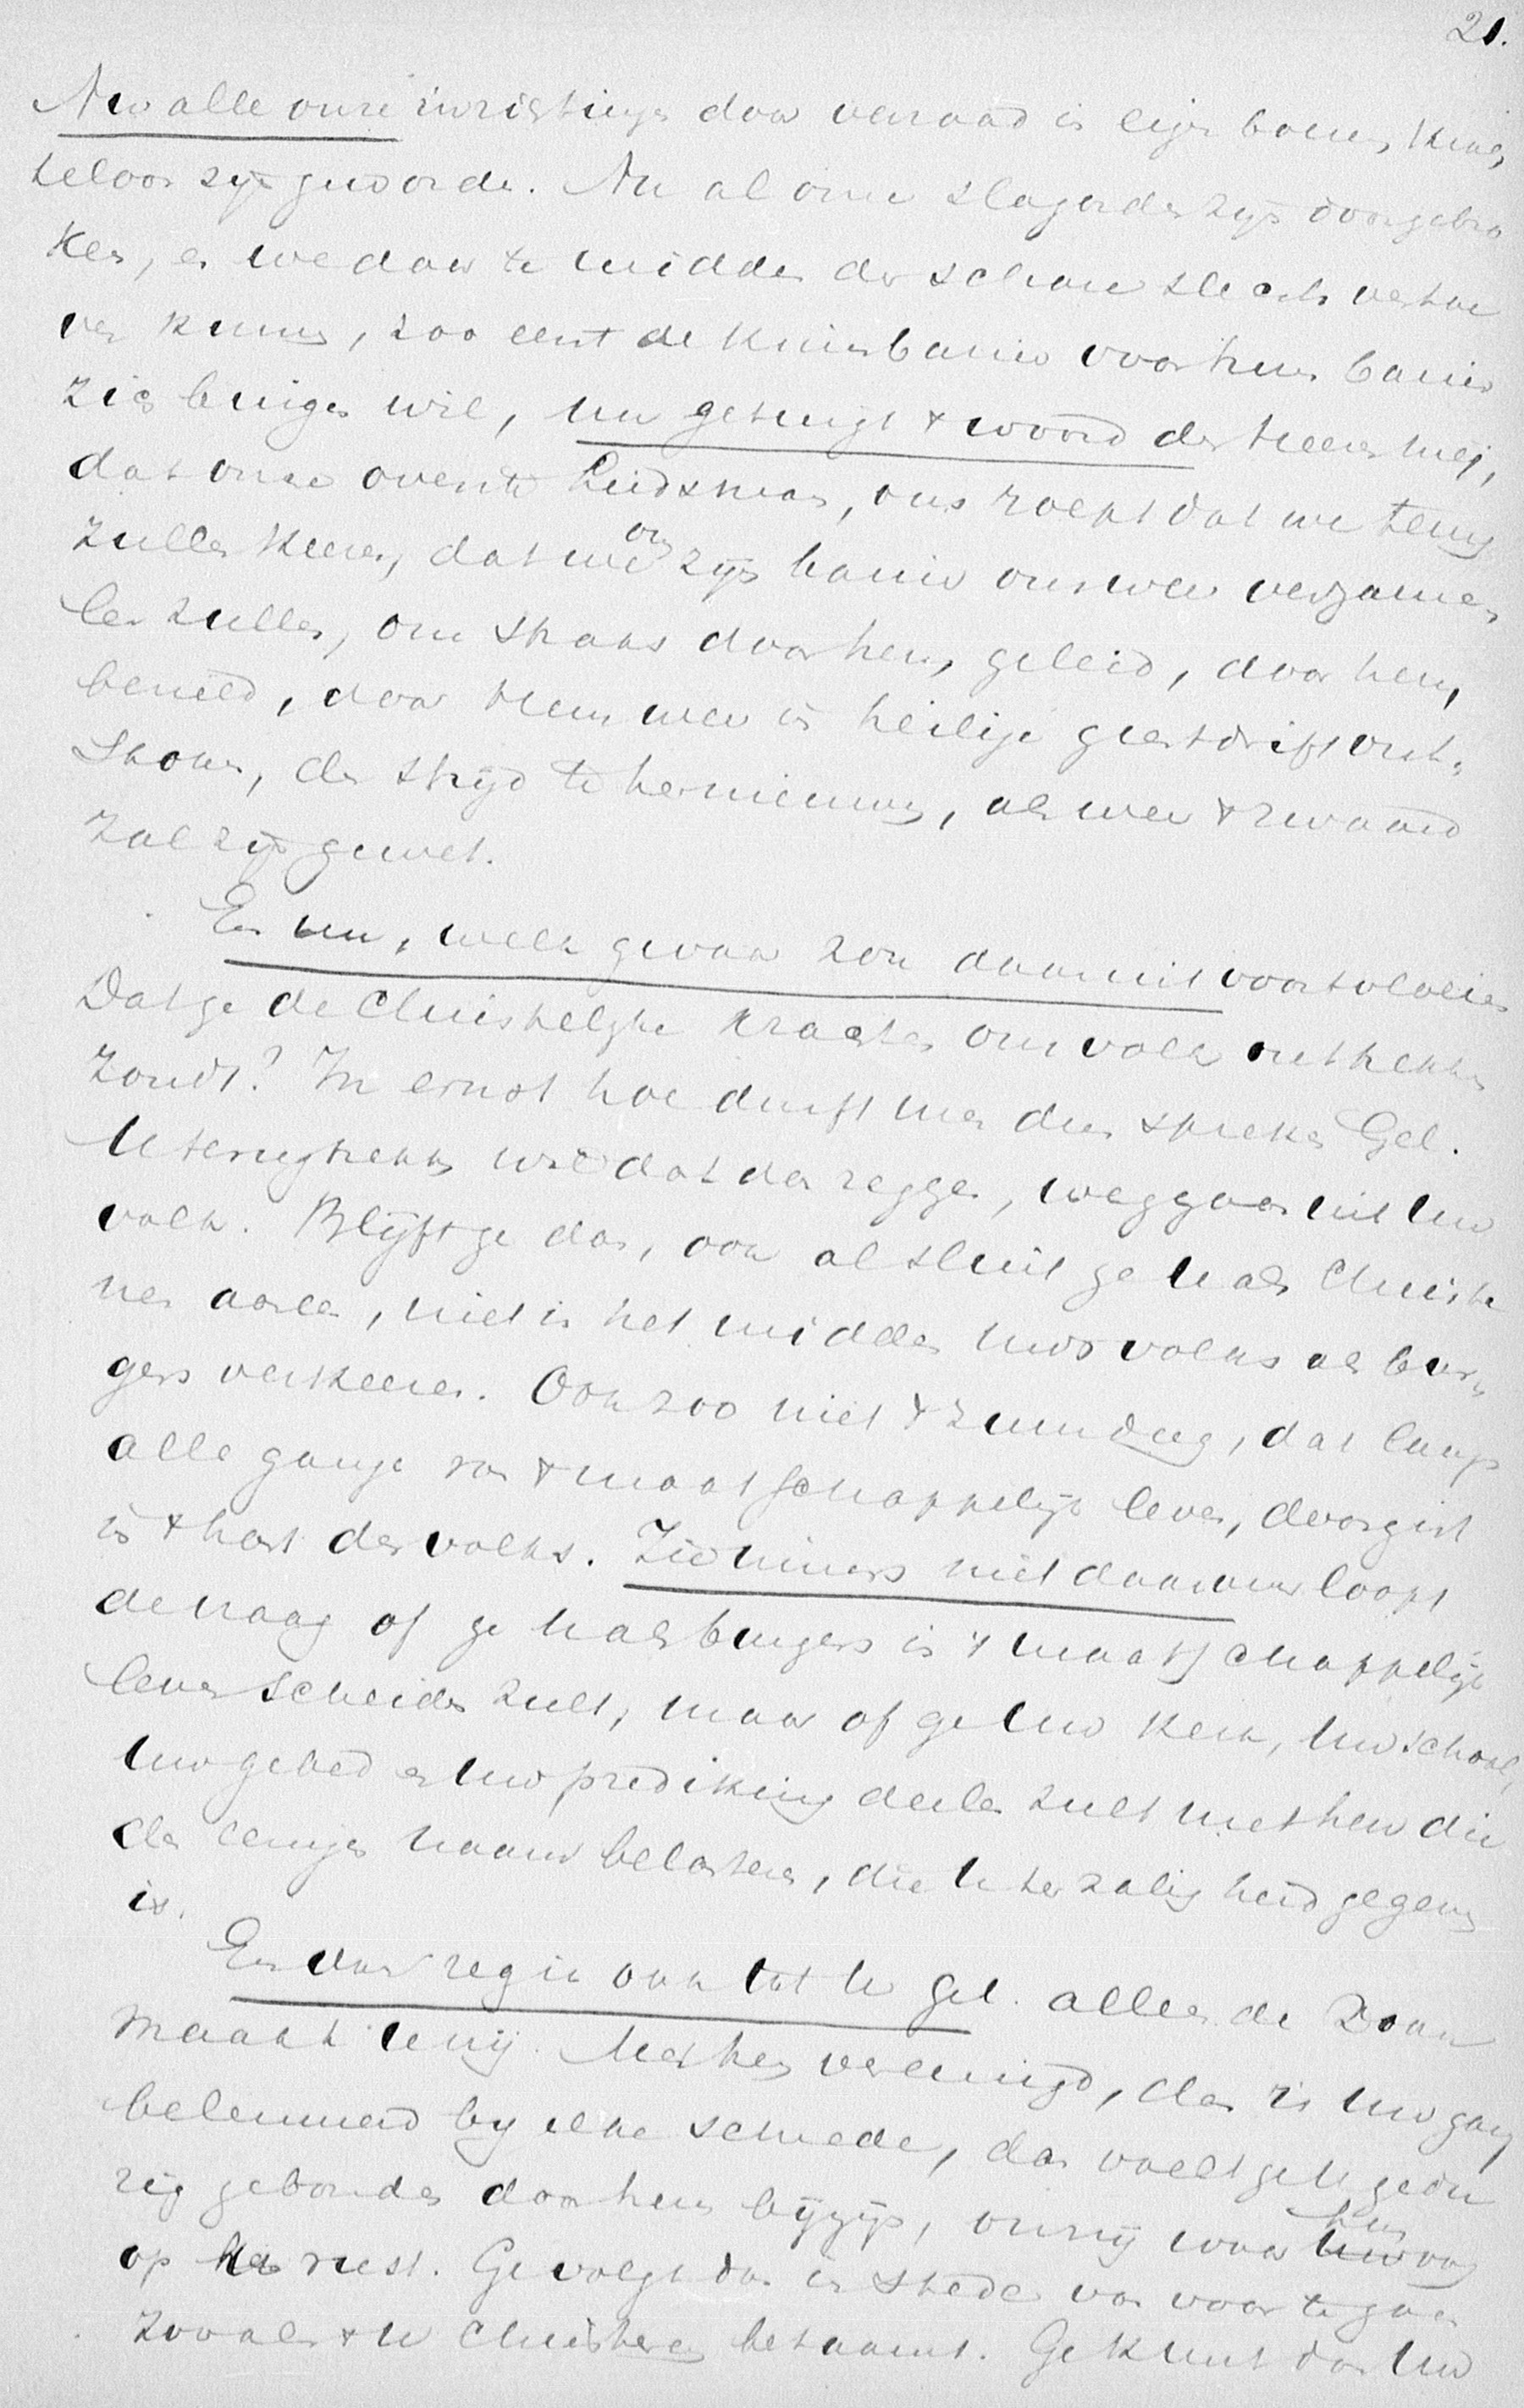 21.
Nu alle onze inrichtingen door verraad in eigen boezem, krach„
teloos zijn geworden. Nu al onze slagorden zijn doorgebro
ken, en we daar te midden der schare slechts vertoe
ven kunnen, zoo eerst de Kruisbanier voor hun banier
zich buigen wil, nu getuigt 't woord des Heeren mij,
dat onze overste Leidsman, ons roept dat we terug
zullen keeren, dat we om zijn banier ons weer verzame„
len zullen, om straks door hem, geleid, door hem,
bereid, door Hem weer in heilige geestdrift ont„
stoken, den strijd te hernieuwen, als weer 't zwaard
zal zijn gewet.
En nu, welk gevaar zou daaruit voortvloeien
Dat ge de Christelijke krachten ons volk onttrekken
zoudt? In ernst hoe durft men dus spreken Gel.
U terugtrekken wil dat dan zeggen, weggaan uit Uw
volk. Blijft ge dan, ook al sluit ge U als Christe
nen aaneen, niet in het midden Uws volks als bur„
gers verkeeren. Ook zoo niet 't zuurdeeg, dat langs
alle gangen van 't maatschappelijk leven, doorgist
in 't hart des volks. Zie immers niet daarover loopt
de vraag of ge U als burgers in 't maatschappelijk
leven scheiden zult, maar of ge Uw Kerk, Uw school,
Uw gebed en Uw prediking deelen zult met hen die
den eenigen naam belasteren, die U ter zaligheid gegeven
is.
En dan zeg ik ook tot U Gel. alleen de Doan
maakt U vrij. Met hen vereenigd, dan is Uw gang
belemmerd bij elke schrede, dan voelt ge U gedu
rig gebonden door hun bijzijn, onvrij waar hun oog
op U rust. Ge volgt dan in stede van voor te gaan
zooals 't U Christenen betaamt. Ge kunt dan Uw